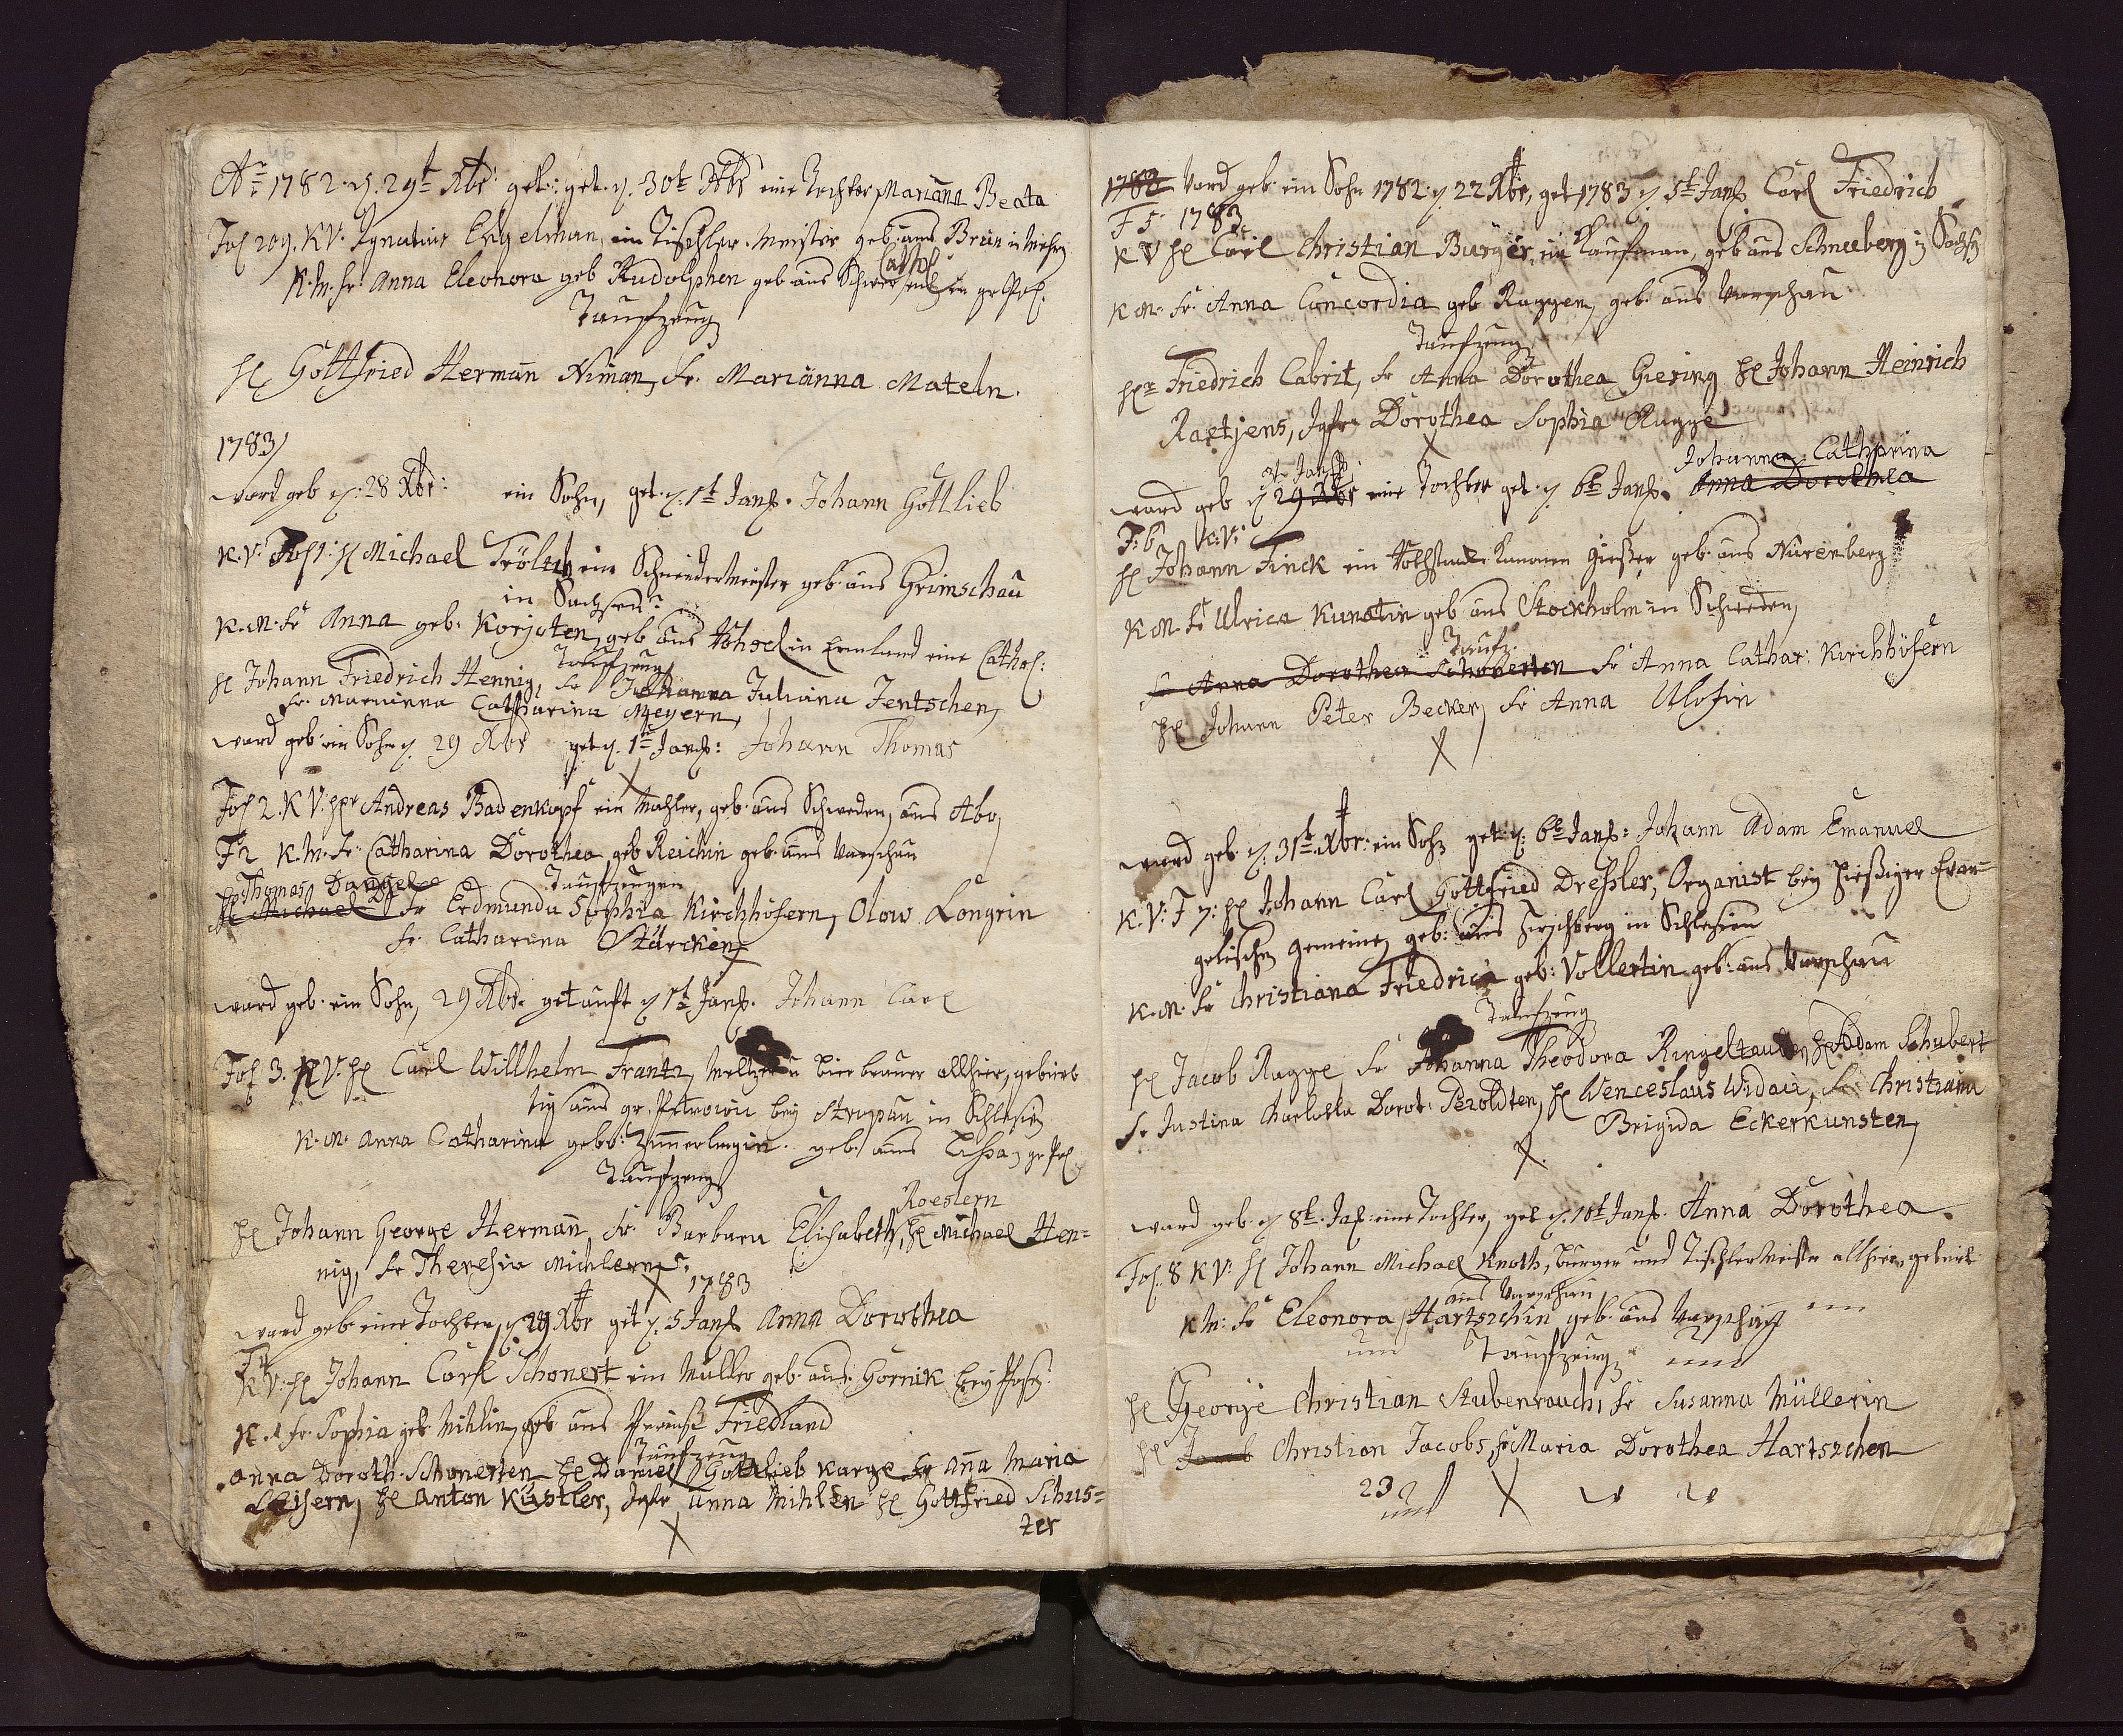 Aō 1782 d. 29t Xbr: geb: get. d. 30t Xbr eine Tochter Mariana Beata
Fol 209. K.V. Ignatius Engelman, ein Tischler Meister geb: aus Brün in Mehren
Cathol
K.M. Fr. Anna Eleonora geb Rudolphen geb aus Schwersentz in gr Pol.
Taufzeug
H Gottfried Herman Niman, Fr. Marianna Mateln.
1783/
ward geb d. 28 Xbr: ein Sohn, get. d. 1t Jan. Johann Gottlieb
K.V. Fol 1: H Michael Tröltzs ein Schneidermeister geb aus Grimschau
in Sachsen
K.M. Fr Anna geb. Korjoten, geb aus in Ermland eine Cathol:
Taufzeug
H Johann Friedrich Hennig, Fr Johanna Juliana Jentschen,
Fr. Marianna Catharina Meyern,
ward geb ein Sohn d. 29 Xbr get d. 1t Jan: Johann Thomas
X
Fol 2. K V: Hr Andreas Badenkopf ein Mahler, geb. aus Schweden, aus Abo,
F 2 K.M. Fr. Catharina Dorothea geb Reichin geb. aus Warschau
H Thomas Dangel Taufzeugen
H Michael Fr Erdmunda Sophia Kirchhöfern, Olow Longrin
Fr. Catharina Stärcken
ward geb. ein Sohn, 29 Xbr. getauft d 1t Jan. Johann Carl
Fol 3. K V. H Carl Willhelm Frantz, Meltzer u Bierbrauer allhier, gebür
tig aus gr. bey Stroppau in Schlesien
K.M. Anna Catharina gebo: Zimmerlingin. geb. aus Lissa, gr Pol
Taufzeug
Roeslern
H Johann George Herman, Fr. Barbara Elisabeth, H Michael Hen=
nig, Fr Theresia Michlern
X 1783
ward geb. eine Tochter, d 29 Xbr get d. 5 Jan Anna Dorothea
F 4
K V: H Johann Carl Schonert ein Müller geb. aus Gornik bey Posen
K.M Fr. Sophia geb. Mihlin, geb aus Preuss Friedland
Taufzeug
Anna Doroth. Schonerten H Daniel Gottlieb Karge Fr Ana Maria
H Anton Küstler, Jgfr Anna Mihlen H Gottfried Schus=
ter
X
1782 Ward geb. ein Sohn 1782. d. 22 Xbr, get 1783 d. 5t Jan Carl Friedrich
F 5. 1783
K V H Carl Christian Bürger, ein Kaufman, geb aus Schneeberg in Sachsen
K M. Fr. Anna Concordia geb Raggen, geb. aus Warschau
Taufzeug
Hr Friedrich Cabrit, Fr Anna Dorothea Giering H Johann Heinrich
Raetjens, Jgfr Dorothea Sophia Ragge
X
3t Jan. Johanna Catharina
ward geb d 29 Xbr eine Tochter get. d 6t Jan. Anna Dorothea
F. 6 K.V.
H Johann Finck ein Kanonen Giesser geb. aus Nürenberg
K M. Fr Ulrica Kunstin geb aus Stockholm in Schweden,
Taufz.
Fr Anna Dorothea Schoberten Fr Anna Cathar: Kirchhöfern
H Johann Peter Becker, Fr Anna Ulofin
X
ward geb. d. 31t Xbr. ein Sohn get: d. 6t Jan: Johann Adam Emanuel
K.V: F 7: H Johann Carl Gottfried Dressler, Organist bey hiesiger Evan=
gelischen Gemeine, geb: aus Hirschberg in Schlesien
K.M. Fr Christiana Friedrica geb: Vollertin geb. aus Warschau
Taufzeug
H Jacob Ragge Fr Johanna Theodora Ringeltauben, H Adam Schubert
Fr Justina Charlotta Dorot. Pezoldten, H Wenceslaus Widair, Fr Christiana
Brigida Eckerkunsten,
X.
ward geb. d 8t. Jan: eine Tochter, get d. 10t Jan. Anna Dorothea
Fol. 8 K V. H Johann Michael Knoth, Bürger und Tischlermeister allhier, gebürt
aus Warschau
K M: Fr Eleonora Hartszchin geb. aus Warschau
Taufzeug
H George Christian Stubenrauch, Fr Susanna Müllerin
H Jacob Christian Jacobs, Fr Maria Dorothea Hartszchen
23 X